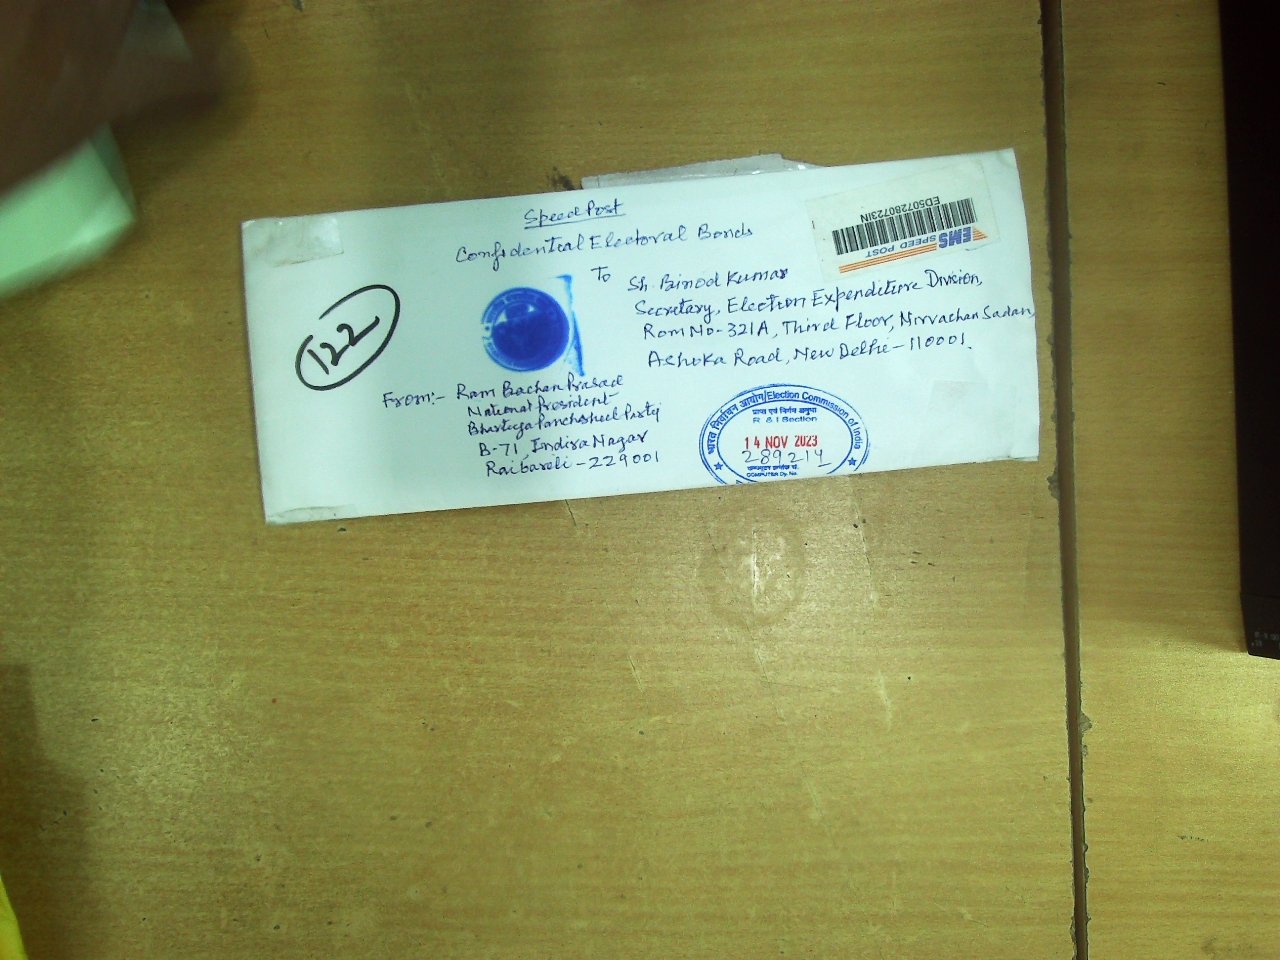 Speed Post
Confidential Electoral Bonds
ED507280723IN
EMS SPEED POST
To
Sh. Binod Kumar
Secretary, Election Expenditure Division,
Rom No-321A, Third Floor, Nirvachan Sadan,
Ashoka Road, New Delhi-110001.
122
From:- Ram Bachan Prasad
National President
Bhartiya Panchsheel Party
B-71, Indira Nagar
Raibareli-229001
भारत निर्वाचन आयोग/Election Commission of India
प्राप्त एवं निर्गम अनुभाग
R & I Section
14 NOV 2023
289214
COMPUTER Dy. No.